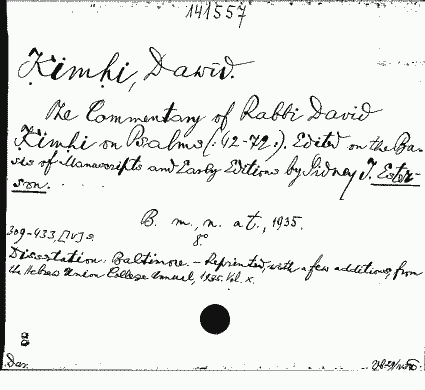 141557
Ḳimḥi, Dawid.
The Commentary of Rabbi David
Ḳimḥi on Psalms (:42-72:). Edited on the Ba-
sis of Manuscripts and Early Editions by Sidney I. Ester-
son.
B. m., n. a t., 1935.
8°
309-433,[IV] s.
Dissertation. Baltimore. – Reprinted, with a few additions, from
the Hebrew Union College Annual, 1935. Vol. X.
Dar.